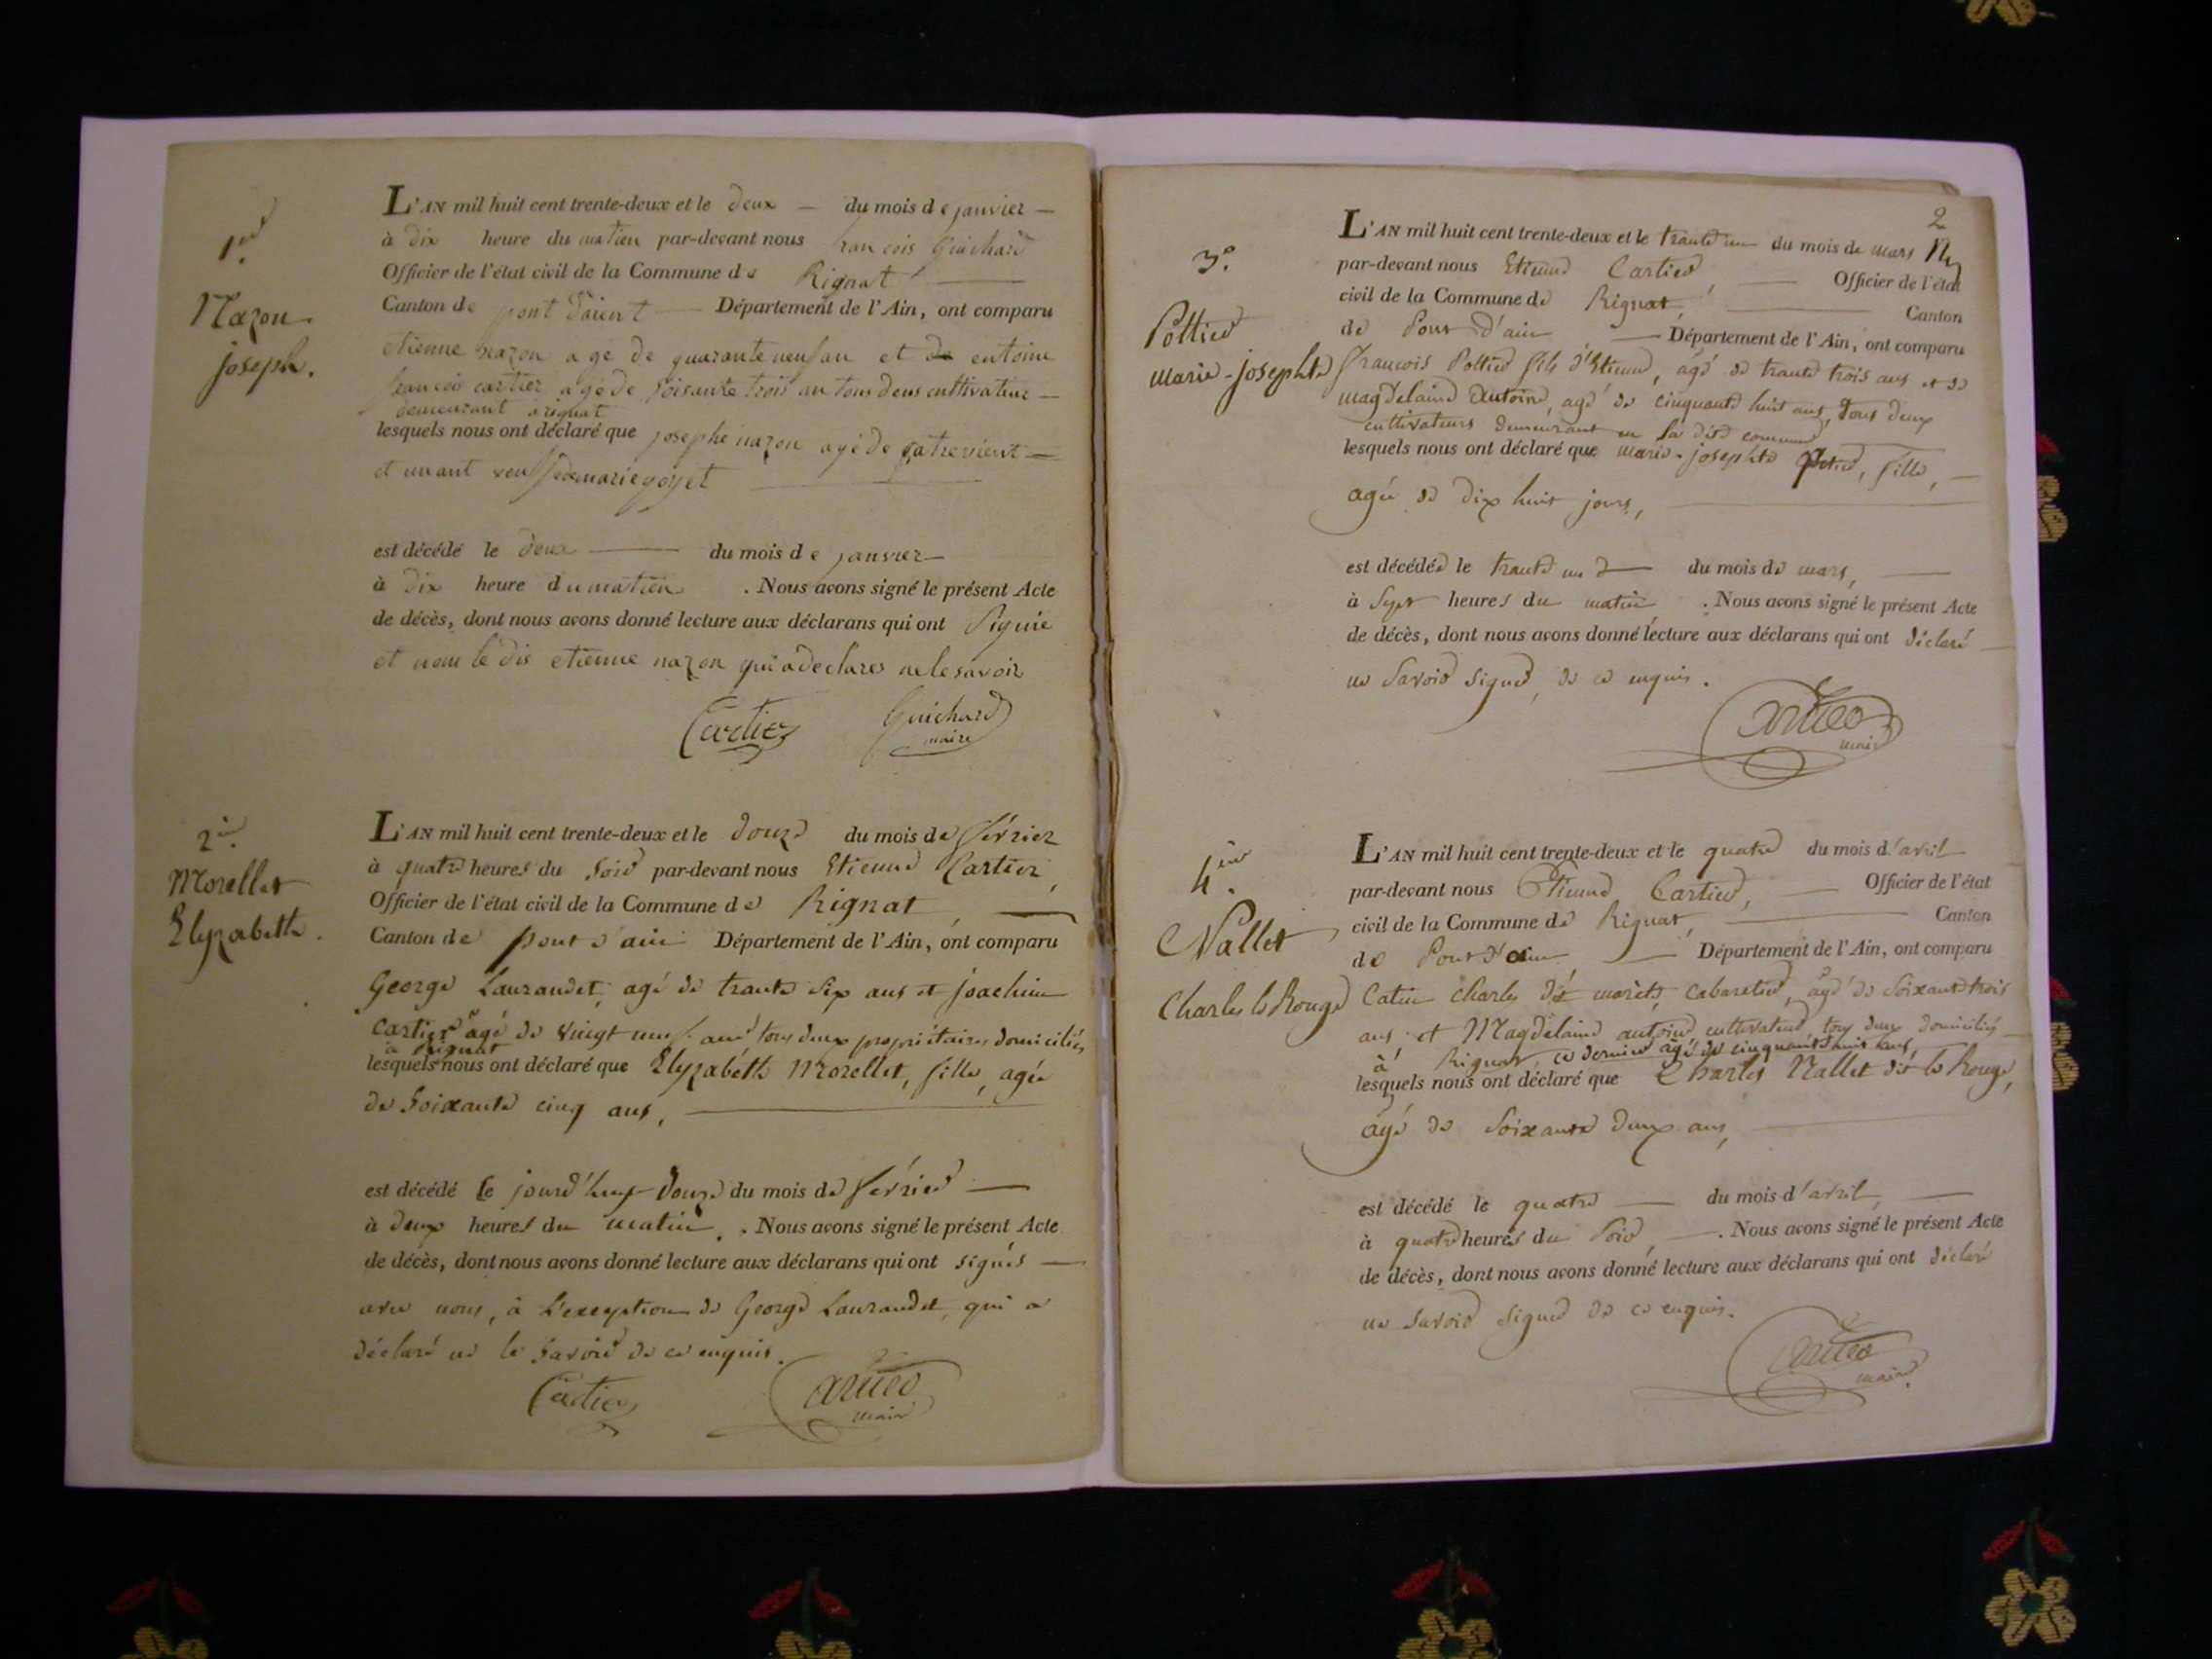 1er
Nazon
joseph.
L'AN mil huit cent trente-deux et le deux — du mois de janvier —
à dix heure du matien par-devant nous francois Guichard
Officier de l'état civil de la Commune de Rignat —
Canton de pont d'aient — Département de l'Ain, ont comparu
etienne nazon agé de quarante neuf an et de entoine
francois cartier agé de soisante trois an tous deus cultivateur —
demeurant a rignat
lesquels nous ont déclaré que josephe nazon agé de qatrevient —
et un ant veuf de marie goyet —
est décédé le deux — du mois de janvier —
à dix heure du matien . Nous avons signé le présent Acte
de décès, dont nous avons donné lecture aux déclarans qui ont Signié
et nom le dis etienne nazon qui a declares ne le savoir
Cartier Guichard
maire
2me
Morellet
Elyzabeth.
L'AN mil huit cent trente-deux et le douze du mois de février
à quatre heures du Soir par-devant nous Etienne Cartier,
Officier de l'état civil de la Commune de Rignat, —
Canton de pont d'ain Département de l'Ain, ont comparu
George Laurandet, agé de trante Six ans et joachim
Cartier agé de vingt neuf ans tous deux propriétaires domiciliés
à Rignat
lesquels nous ont déclaré que Elyzabéth Morellet, fille, agée
de Soixante cinq ans, —
est décédé le jourd'huy douze du mois de février —
à deux heures du matin. . Nous avons signé le présent Acte
de décès, dont nous avons donné lecture aux déclarans qui ont signés —
avec nous, à L'exception de George Laurandet, qui a
déclaré ne le Savoir de ce enquis.
Cartier Cartier
maire
2
3e.
Pottier
marie-josephte
L'AN mil huit cent trente-deux et le trante un du mois de mars
par-devant nous Etienne Cartier, — Officier de l'état
civil de la Commune de Rignat, — Canton
de Pont d'ain — Département de l'Ain, ont comparu
francois Pottier fils d'Etienne, agé de trante trois ans et de
magdelaine Antoine, agé de cinquante huit ans, tous deux
cultivateurs demeurant en la dite commune
lesquels nous ont déclaré que marie-josephte Potier, fille, —
agée de dix huit jours, —
est décédée le trante un — du mois de mars, —
à Sept heures du matin . Nous avons signé le présent Acte
de décès, dont nous avons donné lecture aux déclarans qui ont déclaré —
ne Savoir signer, de ce enquis.
Cartier
maire
4me.
Nallet
Charles le Rouge
L'AN mil huit cent trente-deux et le quatre du mois d'avril
par-devant nous Etienne Cartier, — Officier de l'état
civil de la Commune de Rignat, — Canton
de Pont d'ain — Département de l'Ain, ont comparu
Catin Charles dit marèt, cabaretier, agé de Soixante trois
ans et Magdelaine antoine cultivateur, tous deux domiciliés —
à Rignat, ce dernier agé de cinquante huit ans,
lesquels nous ont déclaré que Charles Nallet dit le Rouge,
âgé de Soixante deux ans, —
est décédé le quatre — du mois d'avril, —
à quatre heures du Soir, — . Nous avons signé le présent Acte
de décès, dont nous avons donné lecture aux déclarans qui ont déclaré
ne Savoir signer de ce enquis.
Cartier
maire